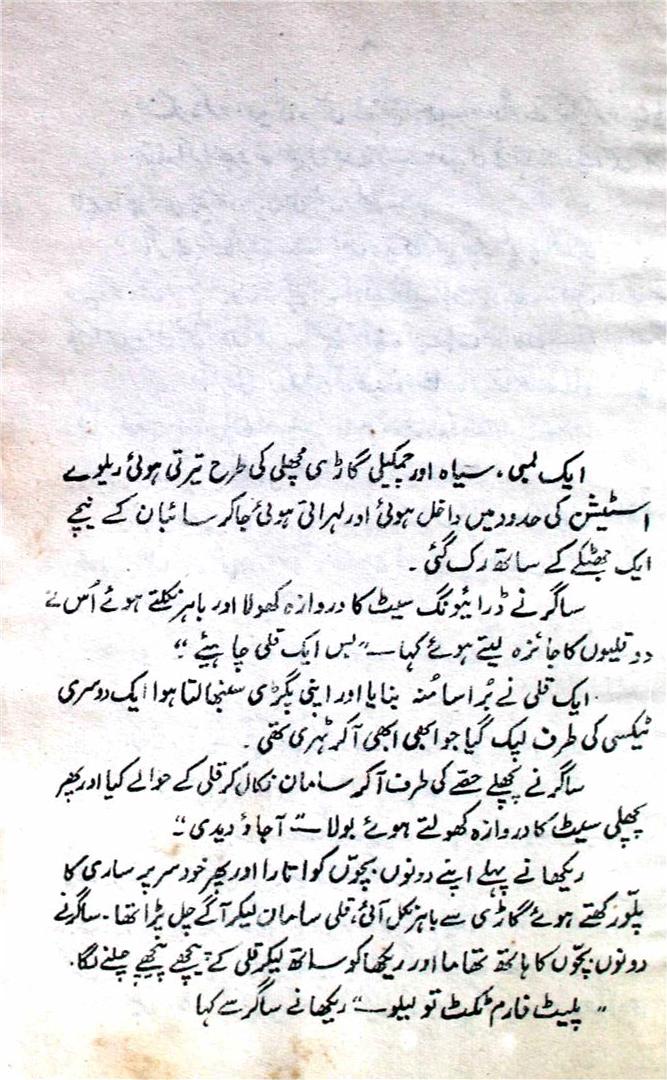 ایک لمبی، سیاہ اور چمکیلی گاڑی مچھلی کی طرح تیرتی ہوئی ریلوے
اسٹیشن کی حدود میں داخل ہوئی اور لہراتی ہوئی جاکر سائبان کے نیچے
ایک جھٹکے کے ساتھ رک گئی۔
ساگر نے ڈرائیونگ سیٹ کا دروازہ کھولا اور باہر نکلتے ہوئے اُس نے
دو قلیوں کا جائزہ لیتے ہوئے کہا ــ "بس ایک قلی چاہیئے"
ایک قلی نے بُرا سا مُنہ بنایا اور اپنی پگڑی سنبھالتا ہوا ایک دوسری
ٹیکسی کی طرف لپک گیا جو ابھی ابھی آکر ٹہری تھی۔
ساگر نے پچھلے حصّے کی طرف آکر سامان نکال کر قلی کے حوالے کیا اور پھر
پچھلی سیٹ کا دروازہ کھولتے ہوئے بولا ــ "آجاؤ دیدی"
ریکھا نے پہلے اپنے دونوں بچّوں کو اتارا اور پھر خود سر پر ساری کا
پلّو رکھتے ہوئے گاڑی سے باہر نکل آئی، قلی سامان لیکر آگے چل پڑا تھا۔ ساگر نے
دونوں بچّوں کا ہاتھ تھاما اور ریکھا کو ساتھ لیکر قلی کے پیچھے پیچھے چلنے لگا۔
"پلیٹ فارم ٹکٹ تو لیلو ــ" ریکھا نے ساگر سے کہا